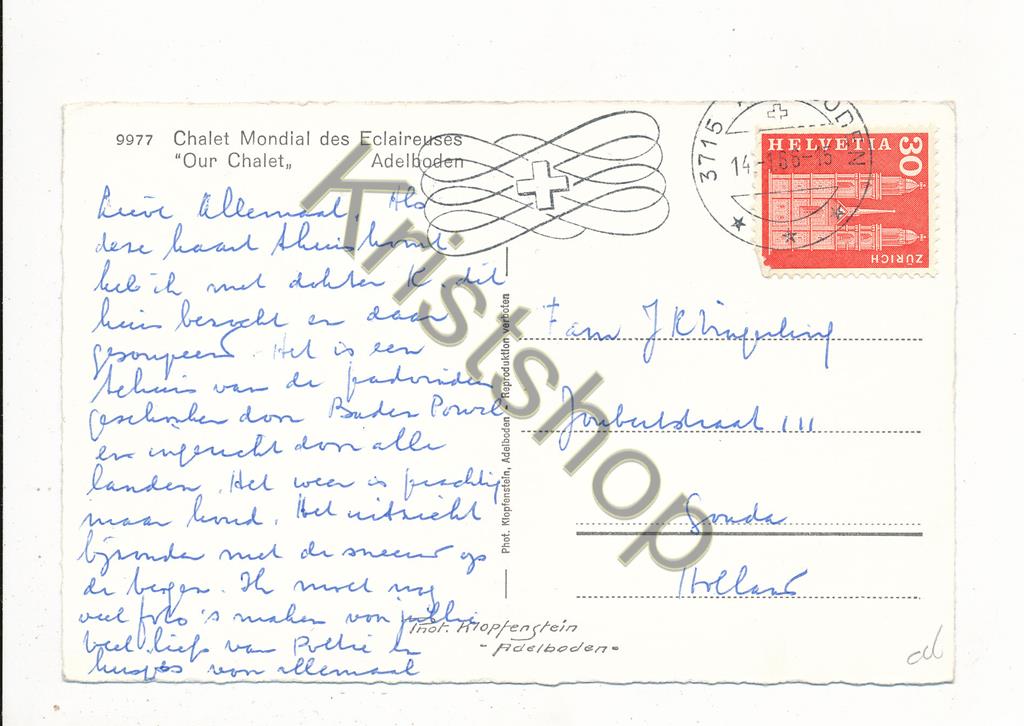 9977 Chalet Mondial des Eclaireuses
"Our Chalet„ Adelboden
Lieve Allemaal, Als
deze kaart thuis komt
heb ik met dokter K. dit
huis bezocht en daar
gesoupeerd. Het is een
tehuis van de padvinders
geschonken door Baden Powel
en ingericht door alle
landen. Het weer is prachtig
maar koud. Het uitzicht
bijzonder met de sneeuw op
de bergen. Ik moet nog
veel foto's maken voor jullie
Veel liefs van
kusjes voor allemaal
Phot. Klopfenstein, Adelboden - Reproduktion verboten
Phot. Klopfenstein
- Adelboden -
3715 ODEN
14.-1.66-15
HELVETIA
30
ZÜRICH
Fam J K Vingerling
Joubertstraat 111
Gouda
Holland
Kristshop